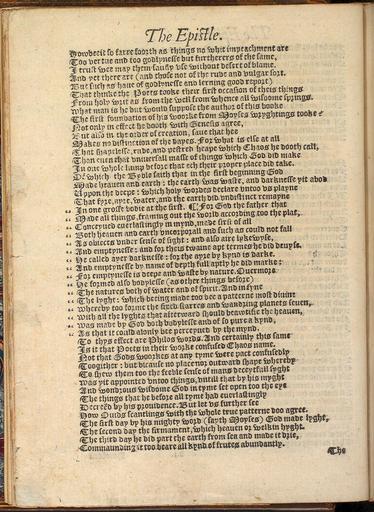 The Epistle.
Howbeeit so farre foorth as things no whit impeachment are
Too vertue and too godlynesse but furtherers of the same,
I trust wee may them saufly vse without desert of blame.
And yet there are (and those not of the rude and vulgar sort,
But such as haue of godlynesse and lerning good report)
That thinke the Poets tooke their first occasion of theis things
From holy writ as from the well from whence all wisdome springs.
What man is he but would suppose the author of this booke
The first foundation of his woorke from Moyses wryghtings tooke
Not only in effect he dooth with Genesis agree,
But also in the order of creation, saue that hee
Makes no distinction of the dayes. For what is else at all
That shapelesse, rude, and pestred heape which Chaos he dooth call,
Than euen that vniuersall masse of things which God did make
In one whole lump before that ech their proper place did take.
Of which the Byble saith that in the first beginning God
Made heauen and earth: the earth was waste, and darknesse yit abod
Uppon the deepe: which holy wordes declare vntoo vs playne
That fyre, ayre, water, and the earth did vndistinct remayne
In one grosse bodie at the first. ¶ For God the father that
Made all things, framing out the world according too the plat,
Conceyued euerlastingly in mynd, made first of all
Both heauen and earth vncorporall and such as could not fall
As obiects vnder sense of sight: and also aire lykewyse,
And emptynesse: and for theis twaine apt termes he did deuyse.
He called ayer darknesse: for the ayre by kynd is darke.
And emptynesse by name of depth full aptly he did marke:
For emptynesse is deepe and waste by nature. Ouermore
He formed also bodylesse (as other things before)
The natures both of water and of spirit. And in fyne
The lyght: which beeing made too bee a patterne most diuine
Whereby too forme the fixed starres and wandring planets seuen,
With all the lyghts that afterward should beawtifie the heauen,
Was made by God both bodylesse and of so pure a kynd,
As that it could alonly bee perceyued by the mynd.
To thys effect are Philos words. And certainly this same
Is it that Poets in their worke confused Chaos name.
Not that Gods woorkes at any tyme were pact confusedly
Toogither: but bicause no place nor outward shape whereby
To shew them too the feeble sense of mans deceytfull syght
Was yit appointed vntoo things, vntill that by his myght
And wondrous wisdome God in tyme set open too the eye
The things that he before all tyme had euerlastingly
Decreëd by his prouidence. But let vs further see
How Ouids scantlings with the whole true patterne doo agree.
The first day by his mighty word (sayth Moyses) God made lyght,
The second day the firmament, which heauen or welkin hyght.
The third day he did part the earth from sea and made it drie,
Commaunding it too beare all kynd of frutes abundantly.
The